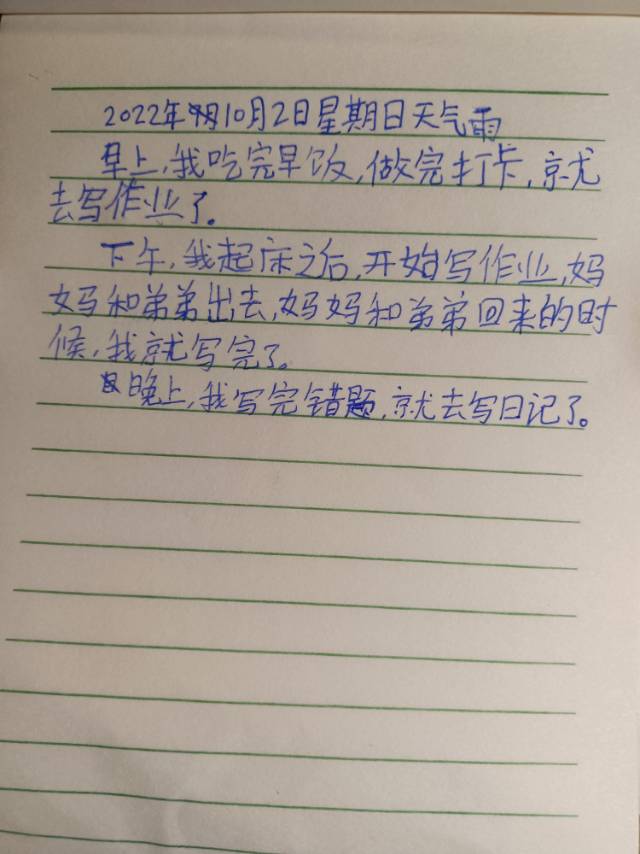 2022年10月2日星期日天气雨
早上,我吃完早饭,做完打卡,就
去写作业了。
下午,我起床之后,开始写作业,妈
妈和弟弟出去,妈妈和弟弟回来的时
候,我就写完了。
晚上,我写完错题,就去写日记了。